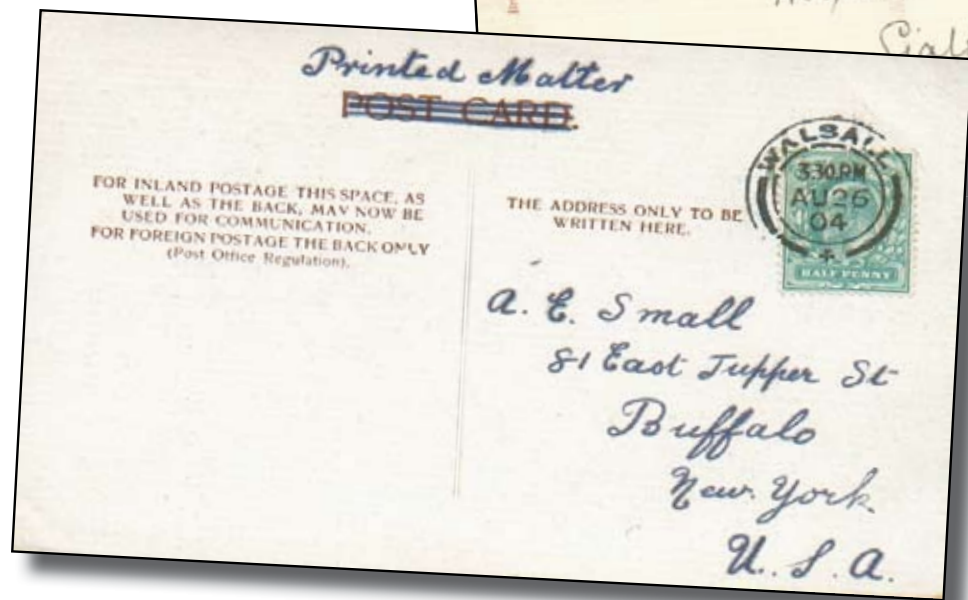 Printed Matter
POST CARD.
FOR INLAND POSTAGE THIS SPACE, AS
WELL AS THE BACK, MAY NOW BE
USED FOR COMMUNICATION.
FOR FOREIGN POSTAGE THE BACK ONLY
(Post Office Regulation).
THE ADDRESS ONLY TO BE
WRITTEN HERE.
WALSALL
3.30 PM
AU 26
04
HALF PENNY
A. E. Small
81 East Tupper St
Buffalo
New York.
U.S.A.